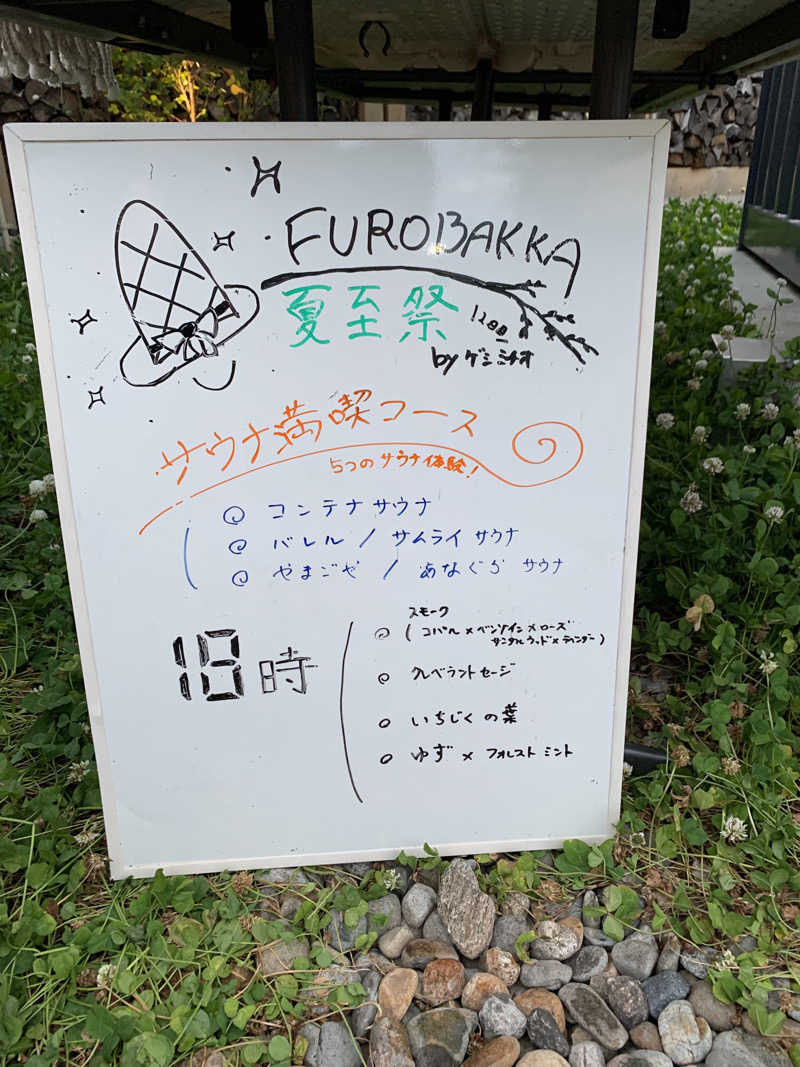 FUROBAKKA
夏至祭
by ゲシミナオ
サウナ満喫コース
5つのサウナ体験!
◎ コンテナサウナ
◎ バレル / サムライサウナ
◎ やまごや / あなぐらサウナ
18時
スモーク
◎ (コパル×ベンゾイン×ローズ
サンダルウッド×ラベンダー)
◎ クレベラントセージ
○ いちじくの葉
○ ゆず×フォレストミント